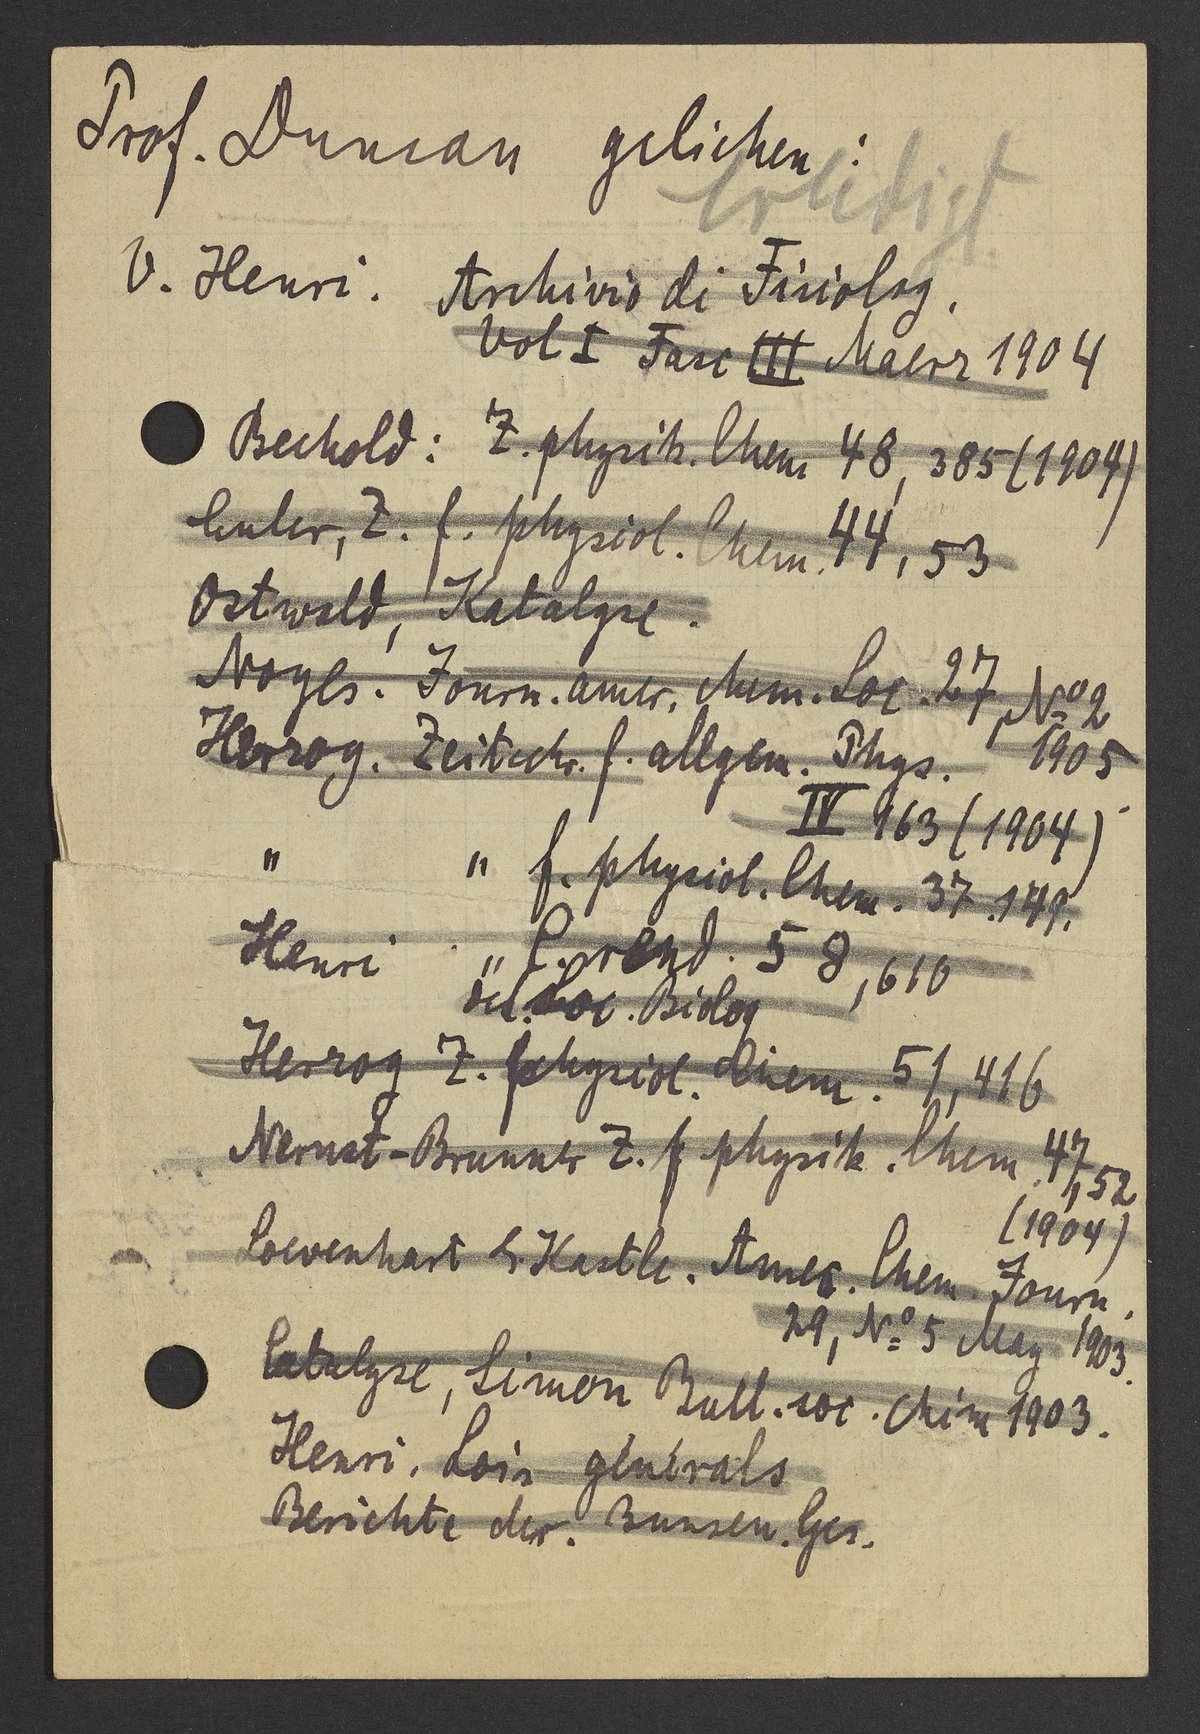 Prof. Duncan geliehen:
Erledigt
V. Henri. Archivio di Fisiolog.
Vol I Fasc III Maerz 1904
Bechold: Z. physik. Chem 48, 385 (1904)
Euler, Z. f. physiol. Chem. 44, 53
Ostwald, Katalyse.
Noyes. Journ. amer. chem. Soc. 27, No 2
1905
Herzog. Zeitschr. f. allgem. Phys.
IV 163 (1904)
" " f. physiol. Chem. 37. 149.
Henri " C. rend. 58, 610
des. Soc. Biolog
Herzog Z. physiol. Chem. 51, 416
Nernst-Brunner Z. f physik. Chem. 47, 52
(1904)
Loevenhart & Kastle. Amer. Chem. Journ.
29, No 5 May 1903.
Catalyse, Simon Bull. soc. chim 1903.
Henri. Lois générals
Berichte der. Bunsen. Ges.